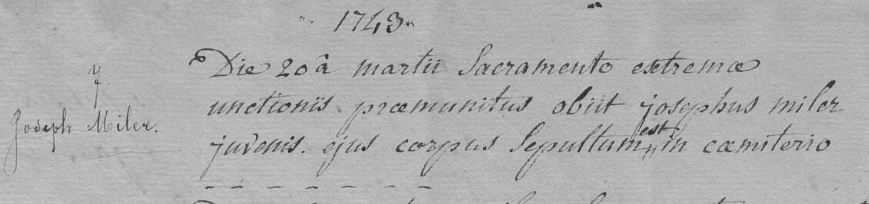 1743.
Die 20â martii Sacramento extremæ
7
unctionis præmunitus obiit josephus miler
Joseph Miler.
juvenis. ejus corpus Sepultum est in cæmiterio